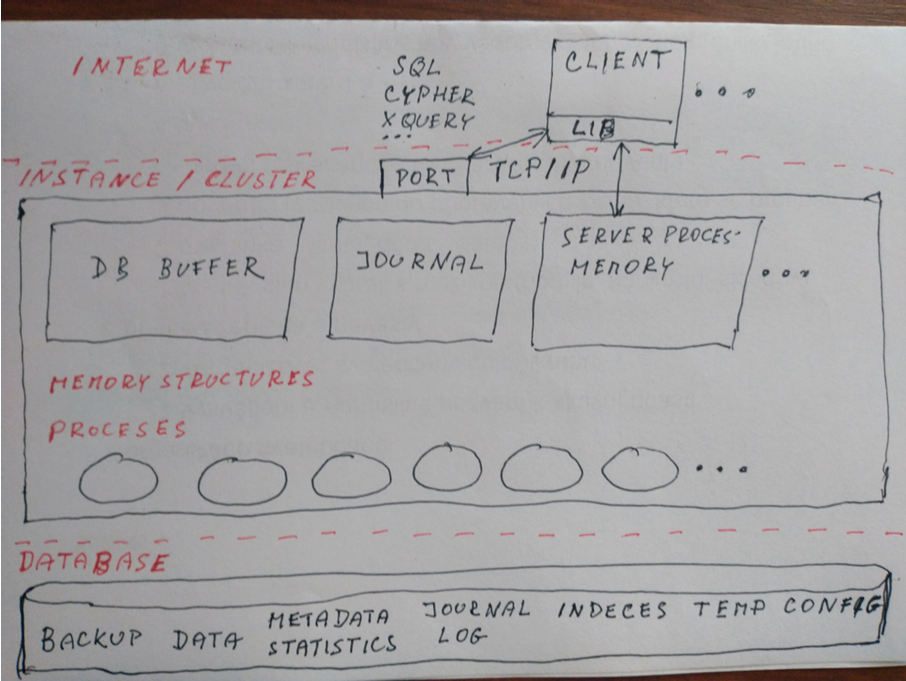 INTERNET
SQL
CYPHER
XQUERY
...
CLIENT
LIB
...
INSTANCE / CLUSTER
PORT
TCP/IP
DB BUFFER
JOURNAL
SERVER PROCES.
MEMORY
...
MEMORY STRUCTURES
PROCESES
...
DATABASE
BACKUP
DATA
METADATA
STATISTICS
JOURNAL
LOG
INDECES
TEMP
CONFIG